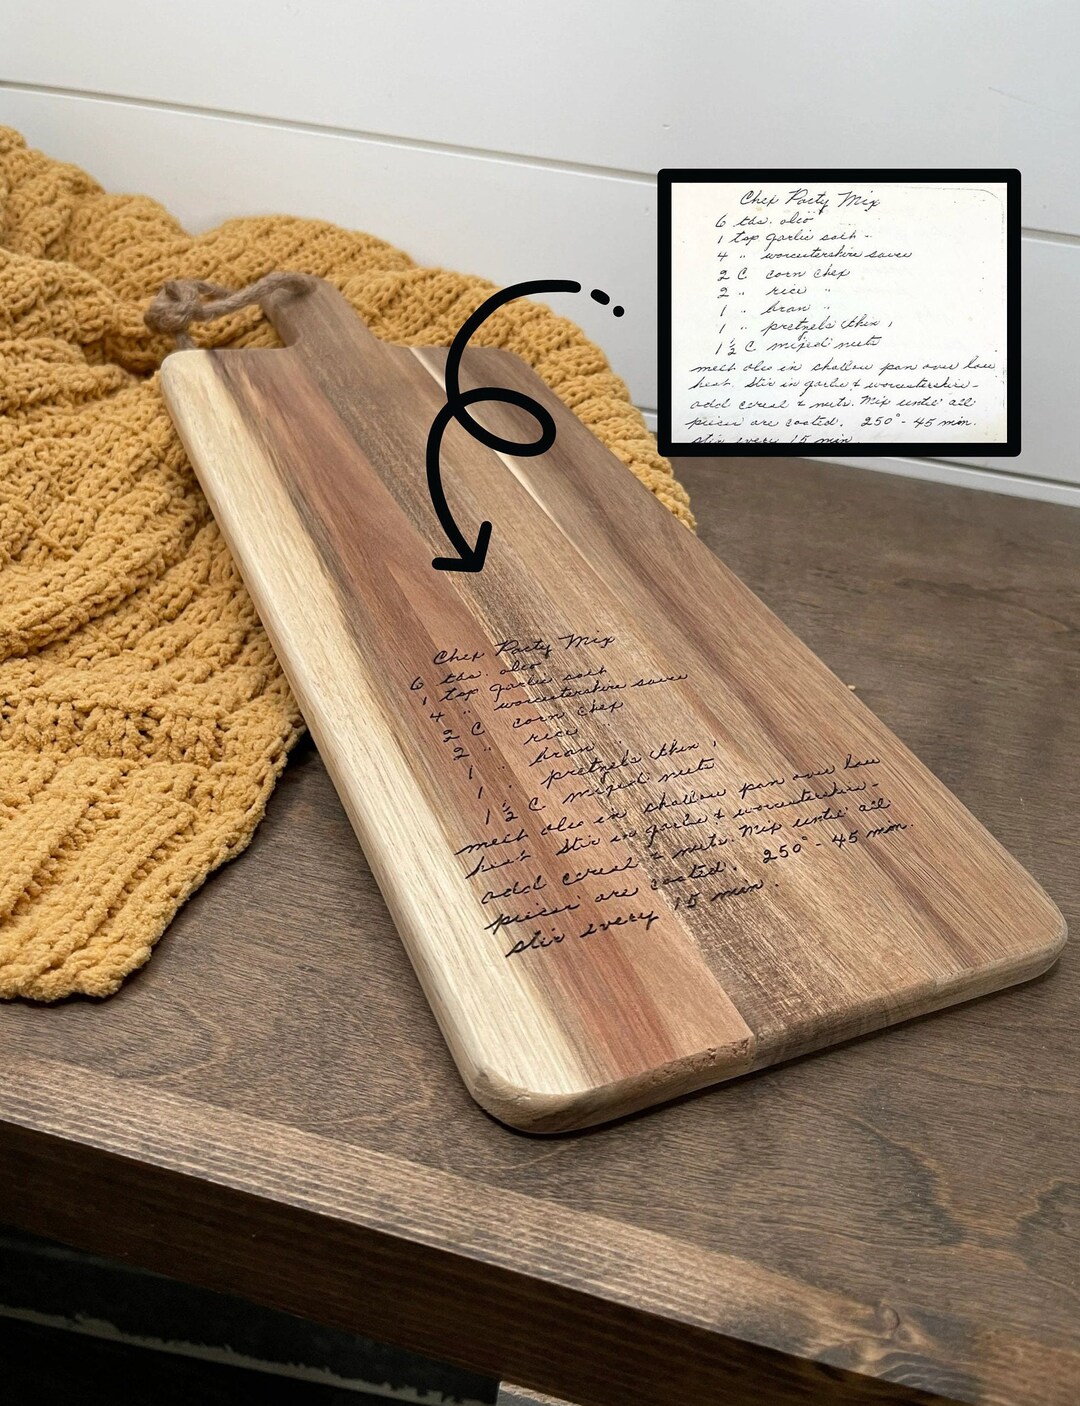 Chex Party Mix
6 tbs. oleo
1 tsp garlic salt -
4 " worcestershire sauce
2 C corn chex
2 " rice "
1 " bran "
1 " pretzels thin,
1 1/2 C mixed nuts
melt oleo in shallow pan over low
heat. Stir in garlic & worcestershire -
add cereal & nuts. Mix until all
pieces are coated. 250° - 45 min.
stir every 15 min.
Chex Party Mix
6 tbs. oleo
1 tsp garlic salt
4 " worcestershire sauce
2 C corn chex
2 " rice "
1 " bran "
1 " pretzels thin,
1 1/2 C mixed nuts
melt oleo in shallow pan over low
heat. Stir in garlic & worcestershire -
add cereal & nuts. Mix until all
pieces are coated. 250° - 45 min.
stir every 15 min.